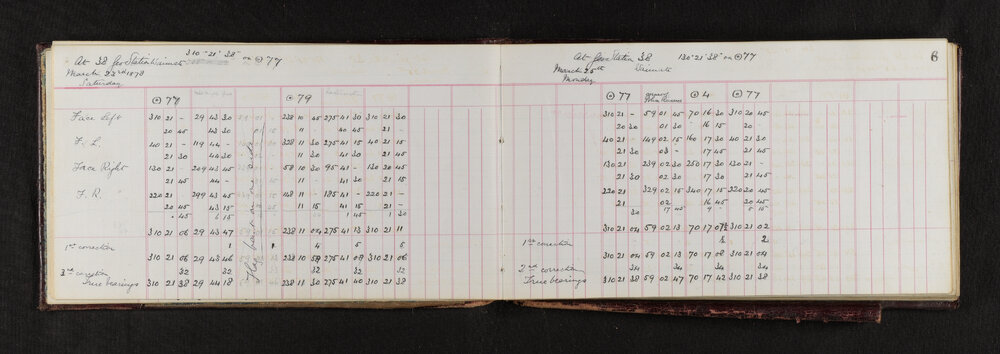 At 38 Geo Station Waimate 310° 21' 38" on ⊙ 77
March 23rd 1878
Saturday
⊙ 77 ⊙ 79
Face Left 310 21 - 29 43 30 238 10 45 275 41 30 310 21 30
20 45 43 30 11 - 40 45 21 -
F. L. 40 21 - 119 44 - 328 11 30 275 41 15 40 21 15
21 30 44 30 11 30 41 30 21 45
Face Right 130 21 - 209 43 45 58 10 30 95 41 - 130 20 45
21 45 44 - 11 - 41 30 21 15
F. R. 220 21 - 299 43 45 148 11 - 185 41 - 220 21 -
20 45 43 15 11 15 41 15 21 -
- 45 6 15 1 45 1 30
310 21 06 29 43 47 238 11 04 275 41 13 310 21 11
1st correction 1 4 5 5
310 21 06 29 43 46 238 10 59 275 41 08 310 21 06
2nd correction 32 32 32 32
True bearings 310 21 38 29 44 18 238 11 30 275 41 40 310 21 38
Flag found on one side
6
At Geo Station 38 130° 21' 38" on ⊙ 77
March 25th Waimate
Monday
⊙ 77 ⊙ 4 ⊙ 77
310 21 - 59 01 45 70 16 30 310 20 45
20 30 01 30 - 16 15 20
40 21 - 149 02 15 160 17 30 40 21 30
21 30 03 - 17 45 21 45
130 21 239 02 30 250 17 30 130 21 -
21 30 02 30 17 30 21 45
220 21 329 02 15 340 17 15 220 20 45
21 02 16 45 20 45
30 17 45 9 - 8 15
310 21 04 59 02 13 70 17 07½ 310 21 02
1st correction 2
310 21 04 59 02 13 70 17 08 310 21 04
2nd correction 34 34 34 34
True bearings 310 21 38 59 02 47 70 17 42 310 21 38